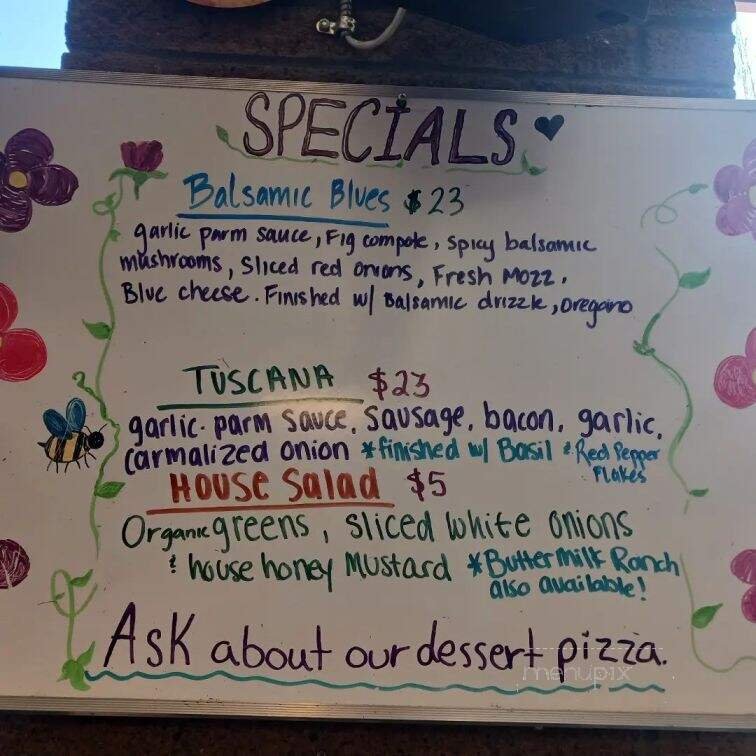 SPECIALS
Balsamic Blues $23
garlic parm sauce, Fig compote, spicy balsamic
mushrooms, Sliced red onions, Fresh Mozz,
Blue cheese. Finished w/ Balsamic drizzle, oregano
TUSCANA $23
garlic parm sauce, sausage, bacon, garlic,
carmalized onion *finished w/ Basil & Red Pepper
Flakes
House Salad $5
Organic greens, sliced white onions
& house honey Mustard *Buttermilk Ranch
also available!
Ask about our dessert pizza.
menupix